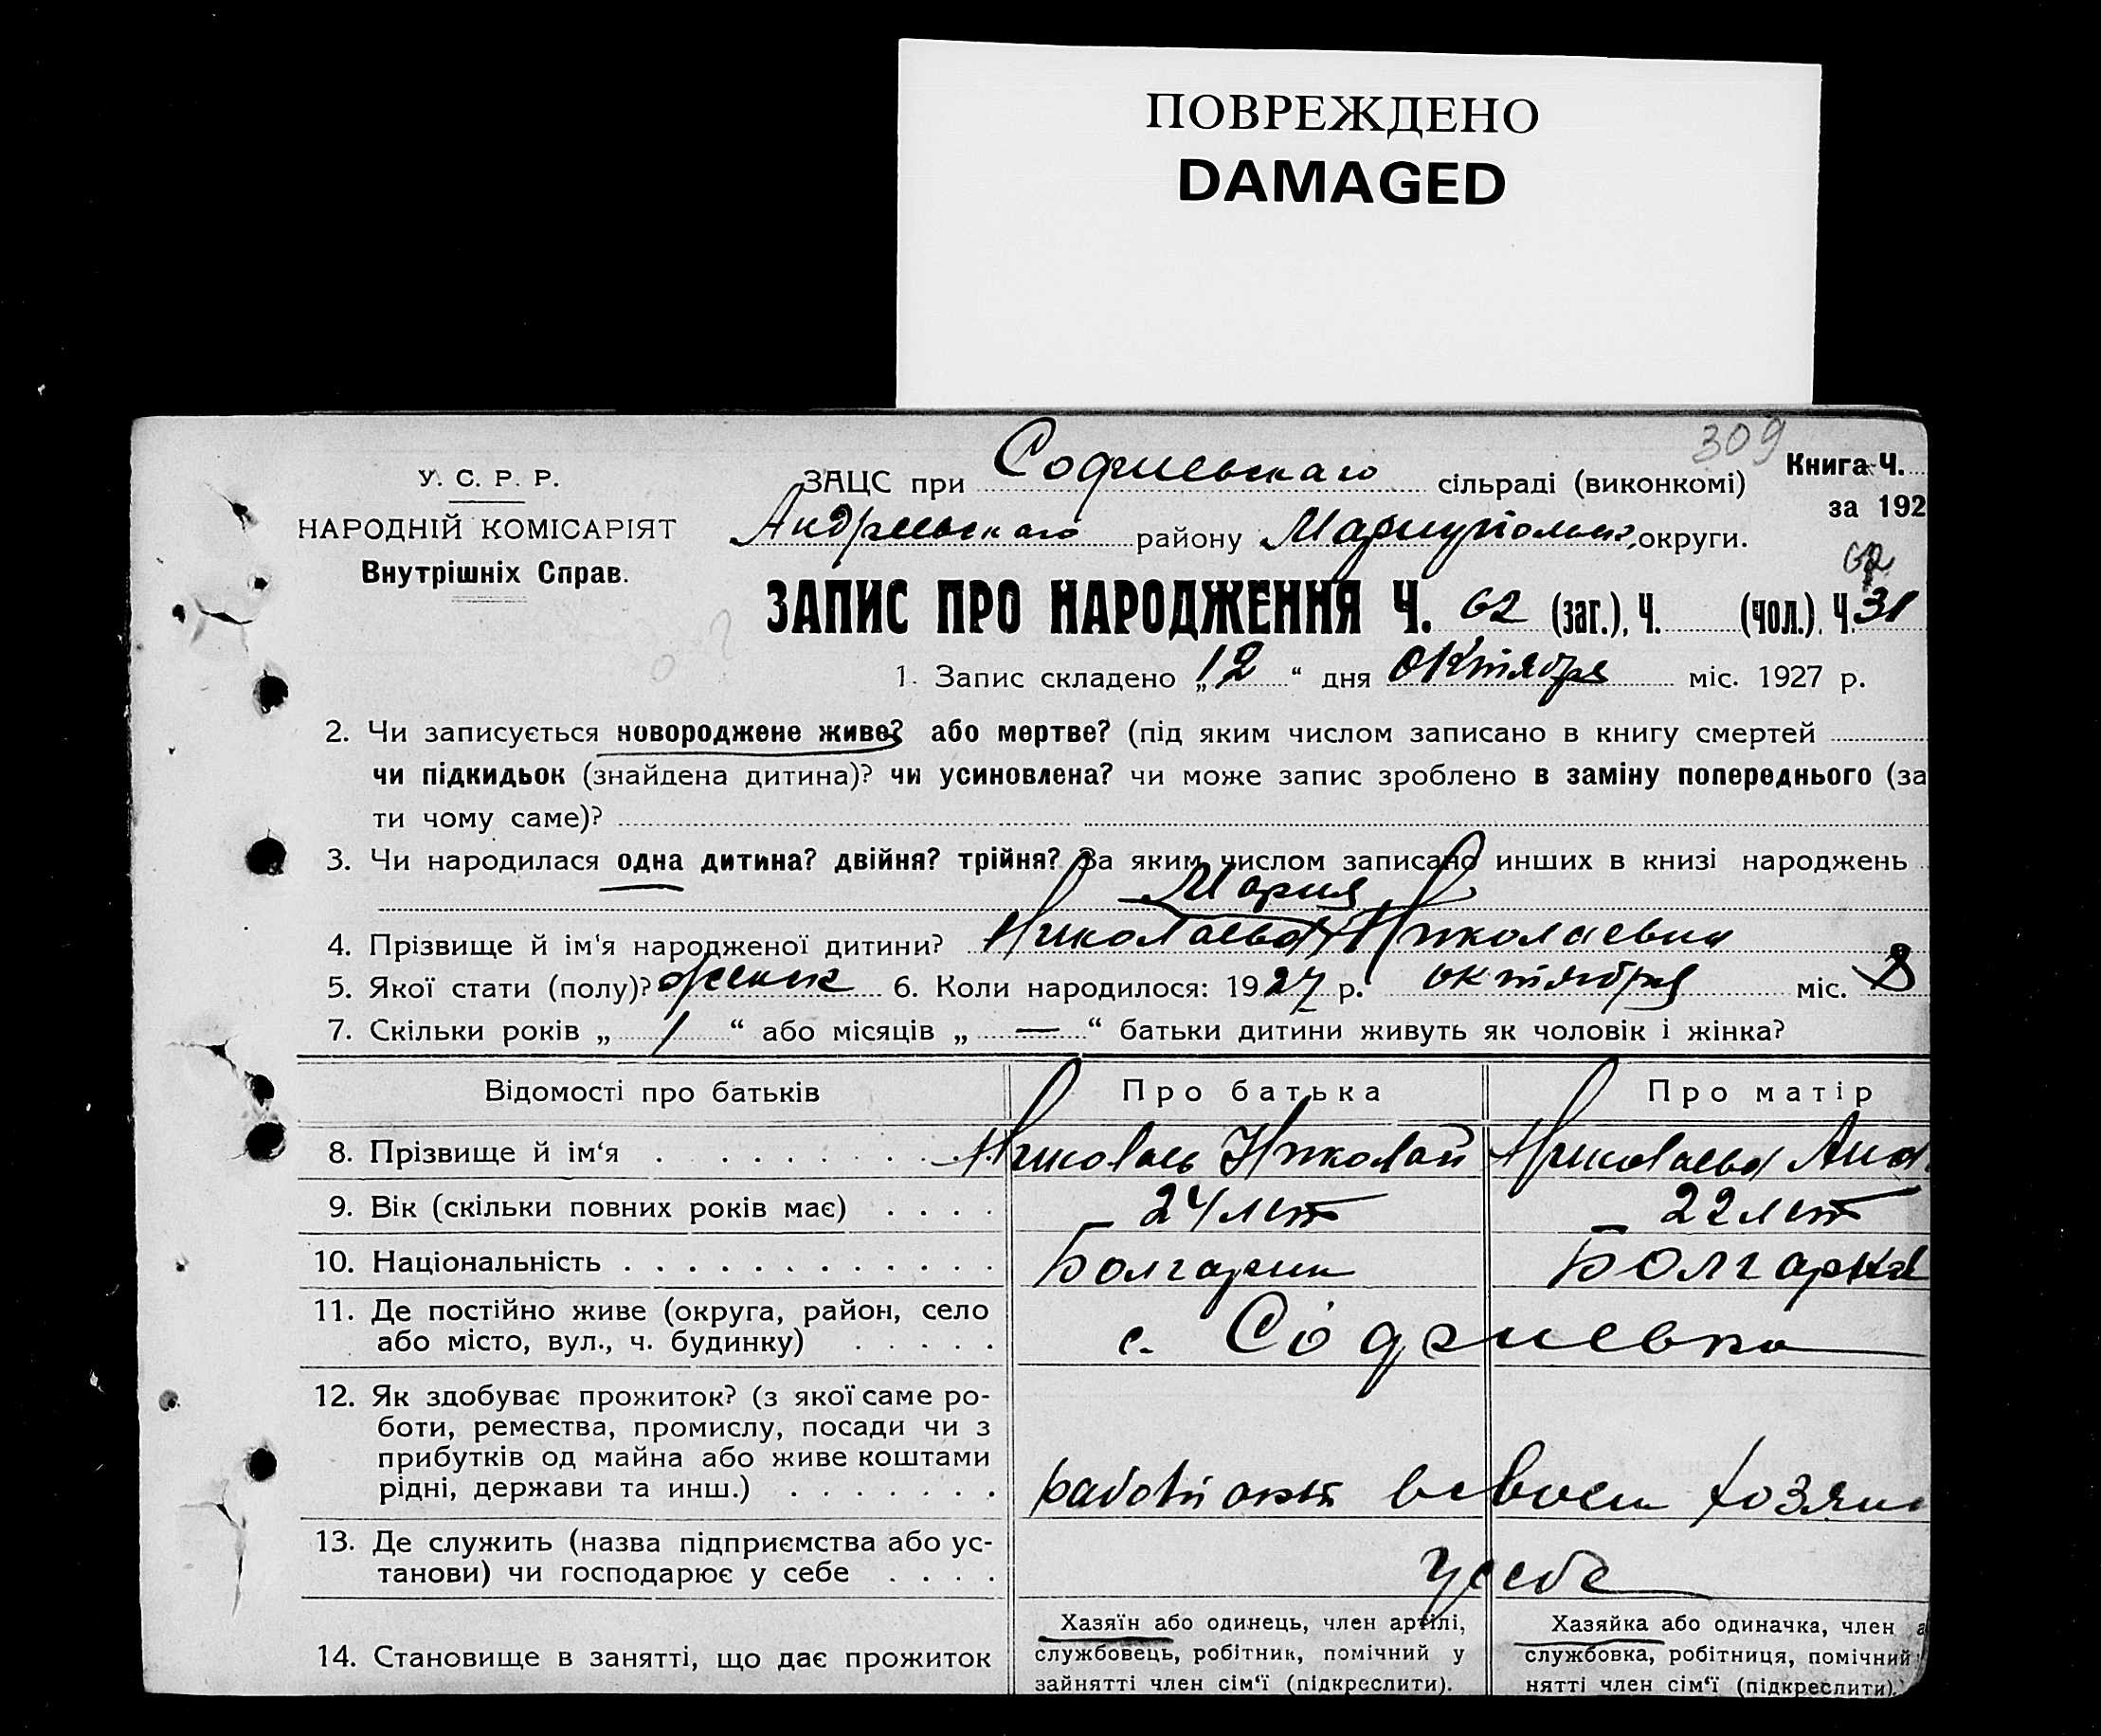 ПОВРЕЖДЕНО
DAMAGED
309
У. С. Р. Р.
НАРОДНІЙ КОМІСАРІЯТ
Внутрішніх Справ.
ЗАЦС при Софиевскаго сільраді (виконкомі)
Андреевскаго району Мариупольск. округи.
Книга Ч.
за 192
62
ЗАПИС ПРО НАРОДЖЕННЯ Ч. 62 (заг.), Ч. (чол.). Ч. 31
1. Запис складено „12“ дня Октября міс. 1927 р.
2. Чи записується новороджене живе? або мертве? (під яким числом записано в книгу смертей
чи підкидьок (знайдена дитина)? чи усиновлена? чи може запис зроблено в заміну попереднього (за
ти чому саме)?
3. Чи народилася одна дитина? двійня? трійня? За яким числом записано инших в книзі народжень
Мария
4. Прізвище й ім‘я народженої дитини? Николаева Николаевна
5. Якої стати (полу)? женск 6. Коли народилося: 1927 р. октября міс. 8
7. Скільки років „ 1 “ або місяців „ — “ батьки дитини живуть як чоловік і жінка?
Відомості про батьків Про батька Про матір
8. Прізвище й ім‘я Николаев Николай Николаева Анна
9. Вік (скільки повних років має) 24 лет 22 лет
10. Національність Болгарин Болгарка
11. Де постійно живе (округа, район, село
або місто, вул., ч. будинку) с. Софиевка
12. Як здобуває прожиток? (з якої саме ро-
боти, ремества, промислу, посади чи з
прибутків од майна або живе коштами
рідні, держави та инш.) работают в своем хозяй
13. Де служить (назва підприємства або ус-
танови) чи господарює у себе у себе
14. Становище в занятті, що дає прожиток
Хазяїн або одинець, член артілі,
службовець, робітник, помічний у
зайнятті член сім‘ї (підкреслити).
Хазяйка або одиначка, член а
службовка, робітниця, помічний
нятті член сім‘ї (підкреслити).